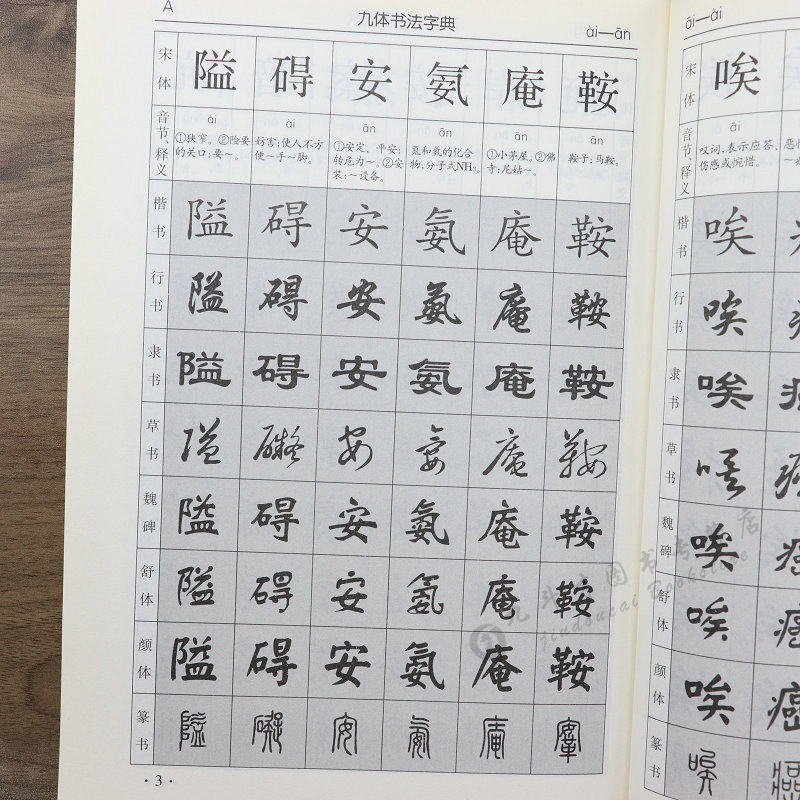 A 九体书法字典 ài—ān
宋体 隘 碍 安 氨 庵 鞍
音节、释义 ài ài ān ān ān ān
①狭窄。②险要的关口:要～。
妨害;使人不方便～手～脚。
①安定、平安:转危为～。②安装:～设备。
氮和氢的化合物,分子式NH₃。
①小茅屋。②佛寺:尼姑～。
鞍子:马鞍。
楷书 隘 碍 安 氨 庵 鞍
行书 隘 碍 安 氨 庵 鞍
隶书 隘 碍 安 氨 庵 鞍
草书 隘 礙 安 氨 庵 鞍
魏碑 隘 碍 安 氨 庵 鞍
舒体 隘 碍 安 氨 庵 鞍
颜体 隘 碍 安 氨 庵 鞍
篆书 隘 礙 安 氨 庵 鞍
·3·
āi—ài
宋体 唉
音节、释义
叹词,表示应答、伤感或惋惜。
楷书 唉
行书 唉
隶书 唉
草书 唉
魏碑 唉
舒体 唉
颜体 唉 癌
篆书 唉
jiudoucai Bookstore